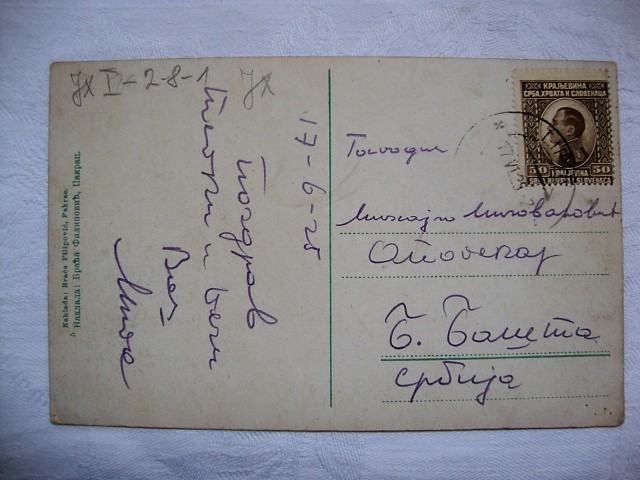 JX I-2-8-1 JX
17-6-25
поздрав
Ваш
Наклада: Braća Filipović, Pakrac.
Наклада: Браћа Филиповић, Пакрац.
КРАЉЕВИНА
СРБА, ХРВАТА И СЛОВЕНАЦА
50 KRALJEVINA 50
Господин
Михајло Миловановић
Апотекар
Б. Башта
Србија